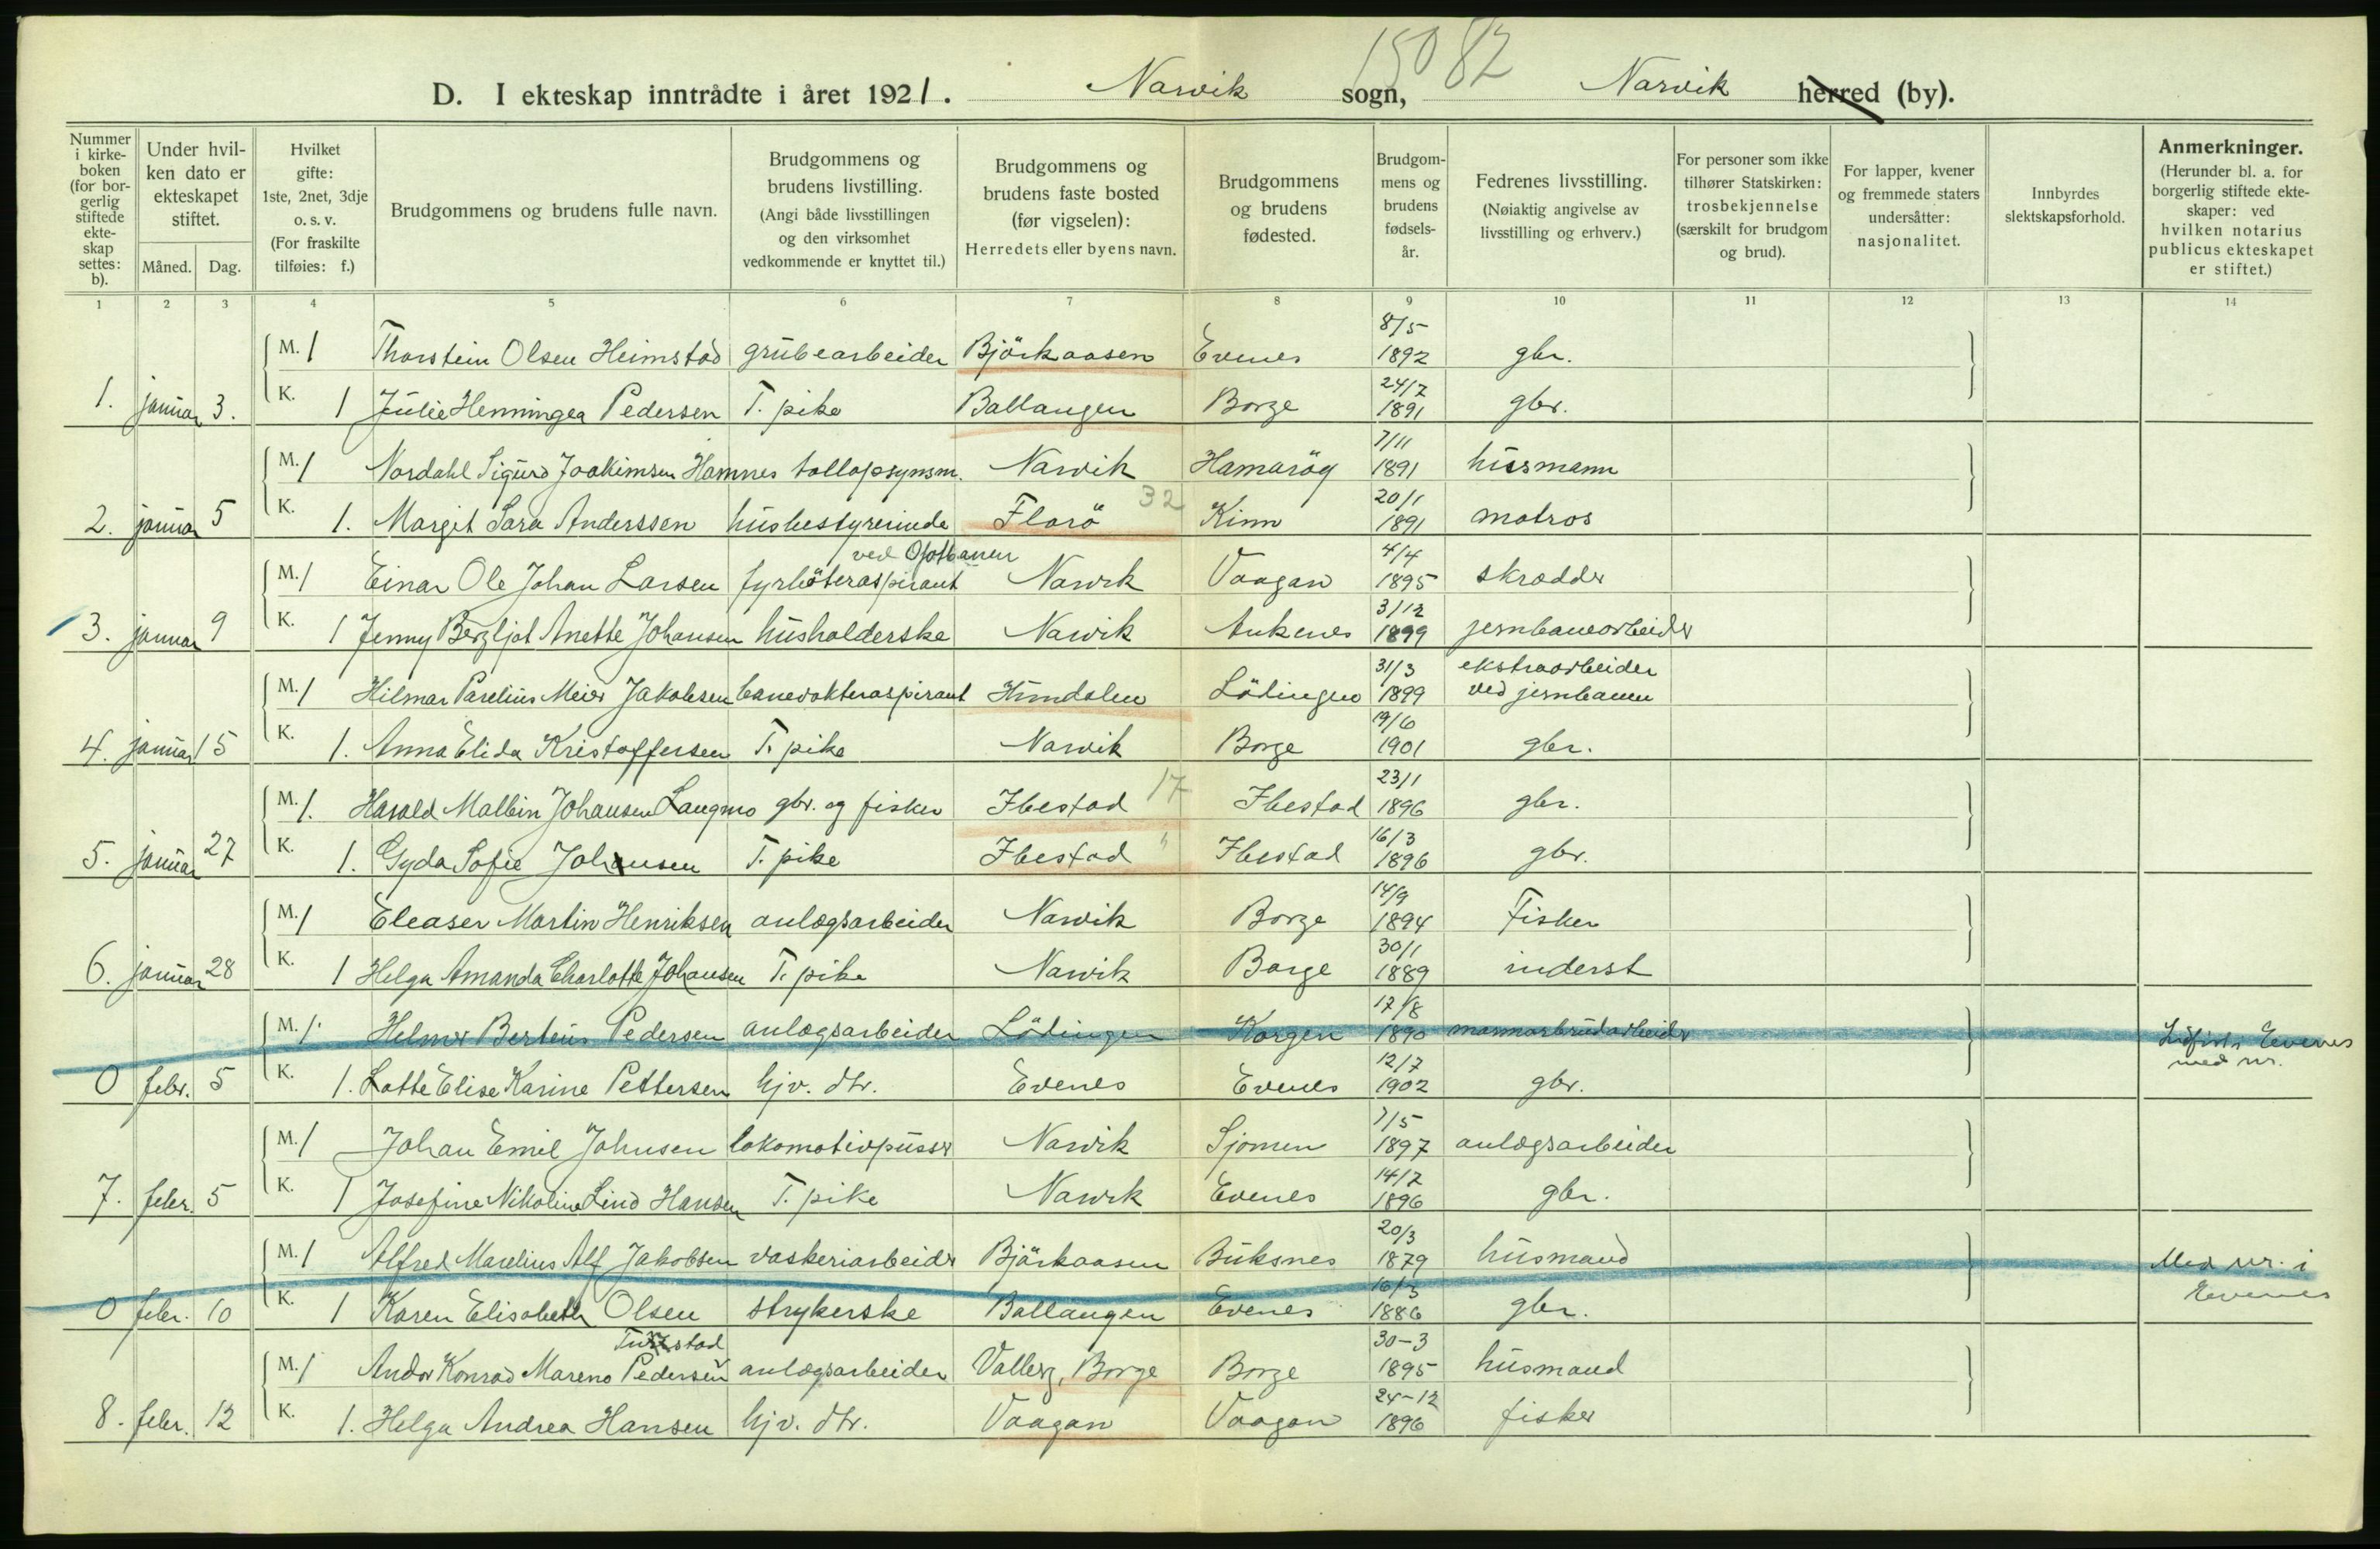 15082
D. I ekteskap inntrådte i året 1921. Narvik sogn, Narvik herred (by).
Nummer i kirke-boken (for bor-gerlig stiftede ekte-skap settes: b).
Under hvil-ken dato er ekteskapet stiftet.
Måned. Dag.
Hvilket gifte: 1ste, 2net, 3dje o. s. v. (For fraskilte tilføies: f.)
Brudgommens og brudens fulle navn.
Brudgommens og brudens livstilling. (Angi både livsstillingen og den virksomhet vedkommende er knyttet til.)
Brudgommens og brudens faste bosted (før vigselen): Herredets eller byens navn.
Brudgommens og brudens fødested.
Brudgom-mens og brudens fødsels-år.
Fedrenes livsstilling. (Nøiaktig angivelse av livsstilling og erhverv.)
For personer som ikke tilhører Statskirken: trosbekjennelse (særskilt for brudgom og brud).
For lapper, kvener og fremmede staters undersåtter: nasjonalitet.
Innbyrdes slektskapsforhold.
Anmerkninger. (Herunder bl. a. for borgerlig stiftede ekte-skaper: ved hvilken notarius publicus ekteskapet er stiftet.)
1 2 3 4 5 6 7 8 9 10 11 12 13 14
M. 1 Thorstein Olsen Heimstad grubearbeider Björkaasen Evenes 8/5 1892 gbr.
1. januar 3. K. 1 Julie Henningea Pedersen T. pike Ballangen Borge 24/7 1891 gbr.
M. 1 Nordahl Sigurd Joakimsen Hamnes tollopsynsm. Narvik Hamaröy 7/11 1891 husmann
2. januar 5 K. 1. Margit Sara Anderssen husbestyrerinde Florö 32 Kinn 20/1 1891 matros
ved Ofotbanen
M. 1 Einar Ole Johan Larsen fyrböteraspirant Narvik Vaagan 4/4 1895 skrædder
3. januar 9 K. 1 Jenny Bergljot Anette Johansen husholderske Narvik Ankenes 3/12 1899 jernbanearbeider
M. 1 Hilmar Parelius Meier Jakobsen banevokteraspirant Hundalen Lödingen 31/3 1899 ekstraarbeider ved jernbanen
4. januar 15 K. 1. Anna Elida Kristoffersen T. pike Narvik Borge 19/6 1901 gbr.
M. 1. Harald Malbin Johansen Langmo gbr. og fisker Ibestad 17 Ibestad 23/1 1896 gbr.
5. januar 27 K. 1. Gyda Sofie Johansen T. pike Ibestad " Ibestad 16/3 1896 gbr.
M. 1 Eleaser Martin Henriksen anlægsarbeider Narvik Borge 14/9 1894 Fisker
6. januar 28 K. 1 Helga Amanda Charlotte Johansen T. pike Narvik Borge 30/1 1889 inderst
M. 1. Helmer Berteus Pedersen anlægsarbeider Lödingen Korgen 17/8 1890 marmorbrudarbeider Evenes med nr.
0 febr. 5 K. 1. Lotte Elise Karine Pettersen hjv. dtr. Evenes Evenes 12/7 1902 gbr.
M. 1 Johan Emil Johnsen lokomotivpusser Narvik Sjomen 7/5 1897 anlægsarbeider
7. febr. 5 K. 1 Josefine Nikoline Lind Hansen T. pike Narvik Evenes 14/7 1896 gbr.
M. 1 Alfred Marelius Alf Jakobsen vaskeriarbeider Björkaasen Buksnes 20/3 1879 husmand Med nr. i Evenes
0 febr. 10 K. 1 Karen Elisabeth Olsen strykerske Ballangen Evenes 16/3 1886 gbr.
M. 1 Andor Konrad Mareno Pedersen anlægsarbeider Valberg, Borge Borge 30-3 1895 husmand
8. febr. 12 K. 1. Helga Andrea Hansen hjv. dtr. Vaagan Vaagan 24-12 1896 fisker